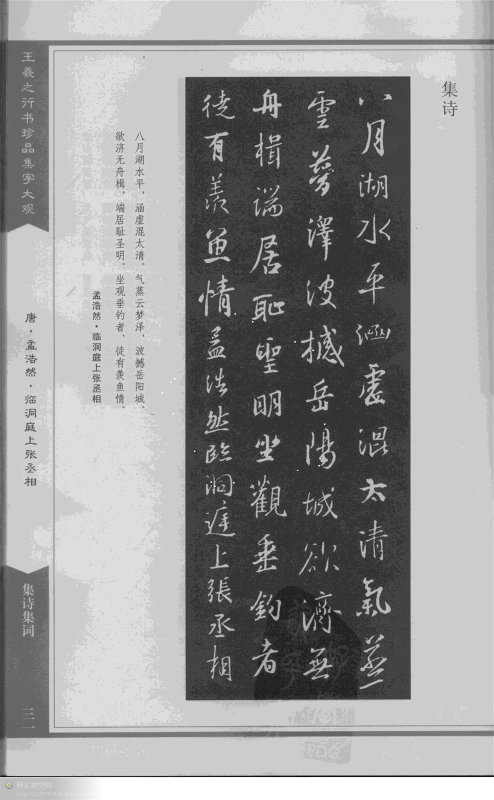 集诗
八月湖水平涵虛混太清氣蒸
雲夢澤波撼岳陽城欲濟無
舟楫端居恥聖明坐觀垂釣者
徒有羨魚情孟浩然臨洞庭上張丞相
八月湖水平，涵虚混太清。气蒸云梦泽，波撼岳阳城。
欲济无舟楫，端居耻圣明。坐观垂钓者，徒有羡鱼情。
孟浩然·临洞庭上张丞相
王羲之行书珍品集字大观
唐·孟浩然·临洞庭上张丞相
集诗集词
三一